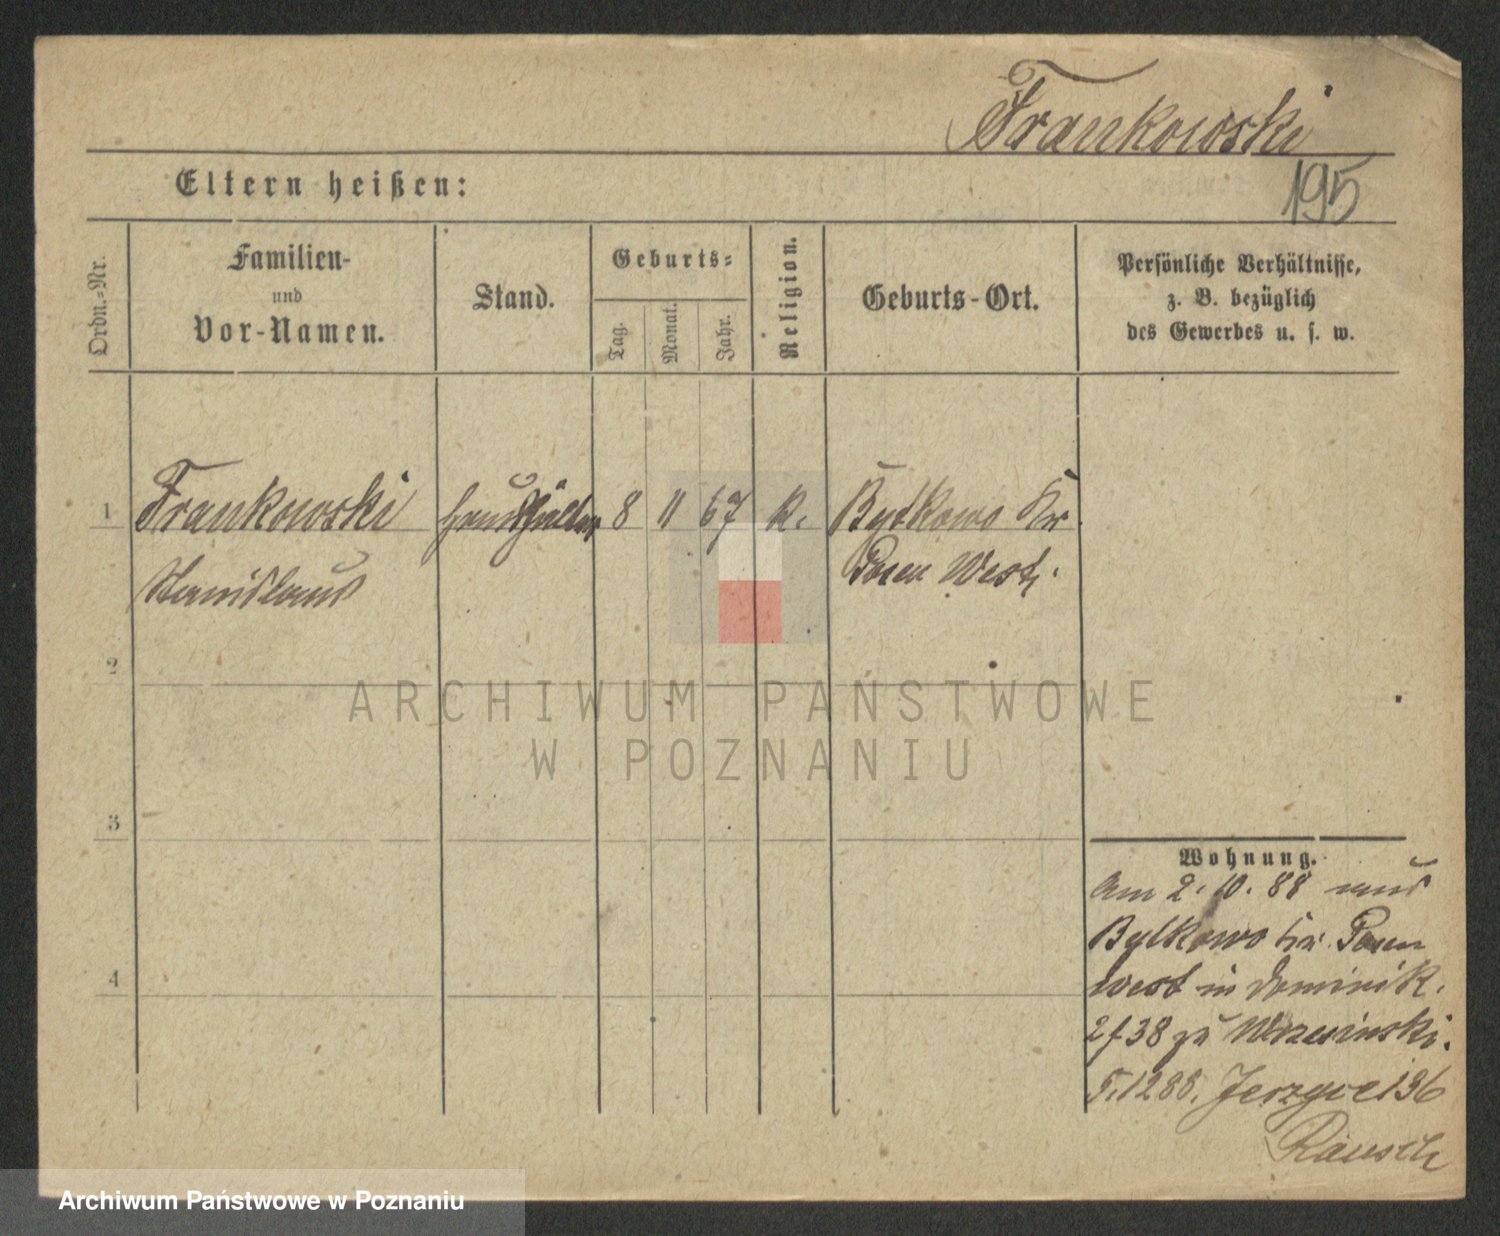 Frankowski
195
Eltern heißen:
Ordn.-Nr.
Familien-
und
Vor-Namen.
Stand.
Geburts-
Tag.
Monat.
Jahr.
Religion.
Geburts-Ort.
Persönliche Verhältnisse,
z. B. bezüglich
des Gewerbes u. s. w.
1 Frankowski Haushälter 8 11 67 k. Bytkowo Kr.
Stanislaus Posen West.
2
ARCHIWUM PAŃSTWOWE
W POZNANIU
3
4
Wohnung.
Am 2. 10. 88 aus
Bytkowo Posen
West in Dominik.
38 zu
88. Jerzyce 136
Rausch
Archiwum Państwowe w Poznaniu